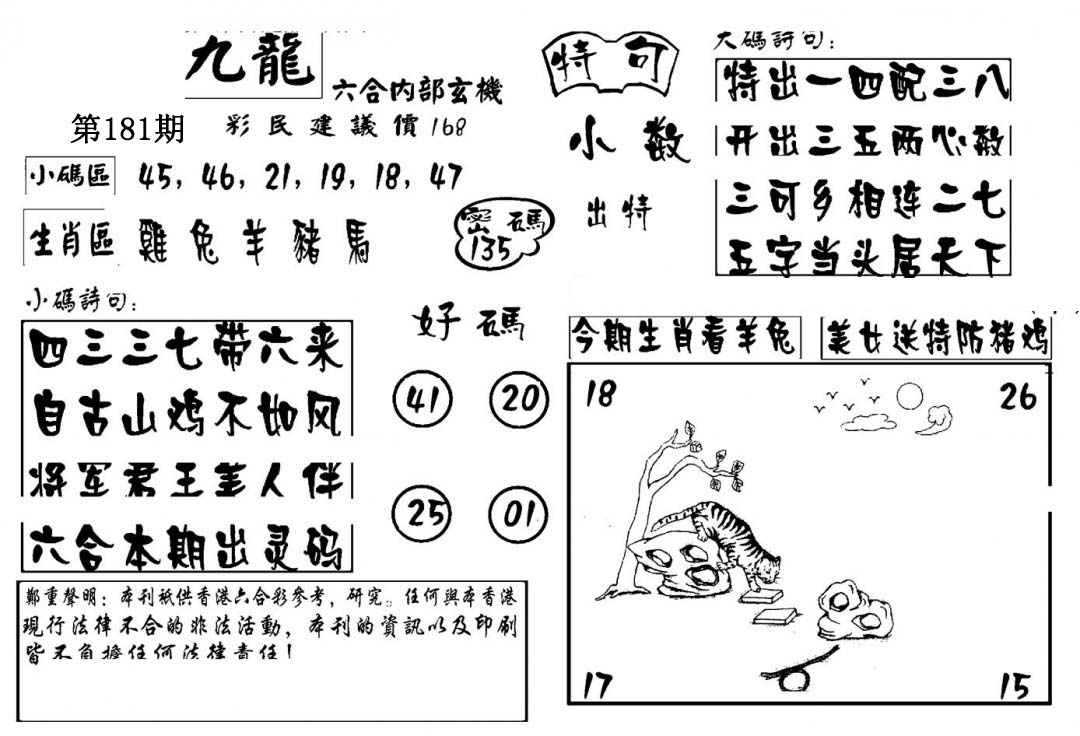 九龍
六合内部玄機
第181期
彩民建議價168
小碼區 45, 46, 21, 19, 18, 47
生肖區 雞兔羊豬馬
密碼
135
小碼詩句:
四三三七带六来
自古山鸡不如风
将军君王美人伴
六合本期出灵码
好碼
41 20
25 01
鄭重聲明: 本刊祇供香港六合彩參考, 研究。任何與本香港
現行法律不合的非法活動, 本刊的資訊以及印刷
皆不負擔任何法律責任!
特句
小数
出特
大碼詩句:
特出一四配三八
开出三五两心数
三可乡相连二七
五字当头居天下
今期生肖看羊兔
美女送特防猪鸡
18 26
17 15